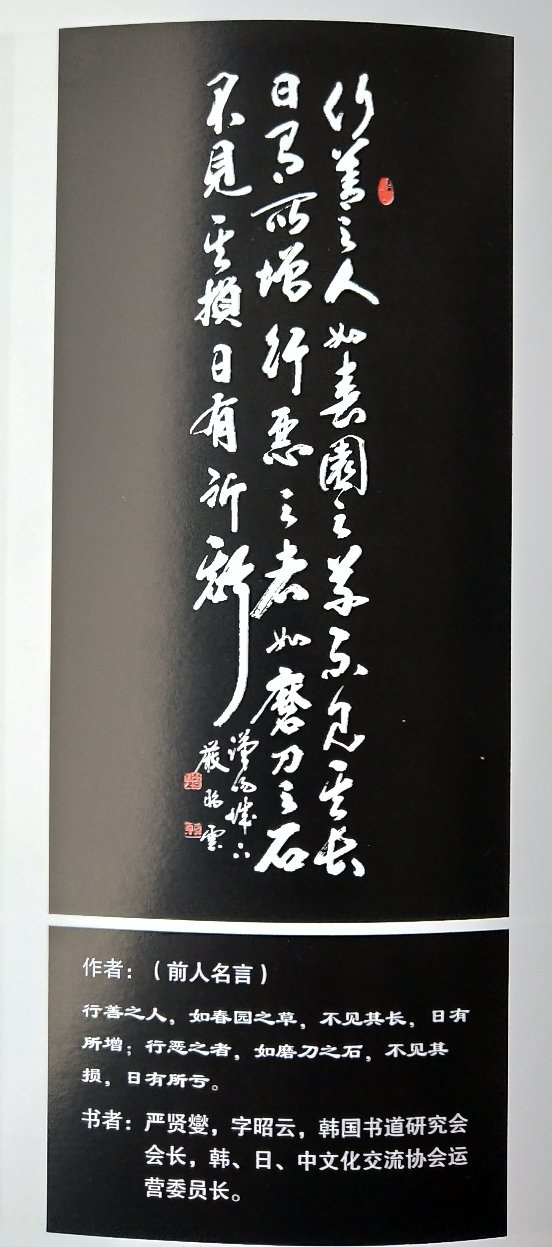 行善之人如春園之草不見其長
日有所增行惡之者如磨刀之石
不見其損日有所虧
嚴昭雲
作者：（前人名言）
行善之人，如春园之草，不见其长，日有
所增；行恶之者，如磨刀之石，不见其
损，日有所亏。
书者：严贤燮，字昭云，韩国书道研究会
会长，韩、日、中文化交流协会运
营委员长。